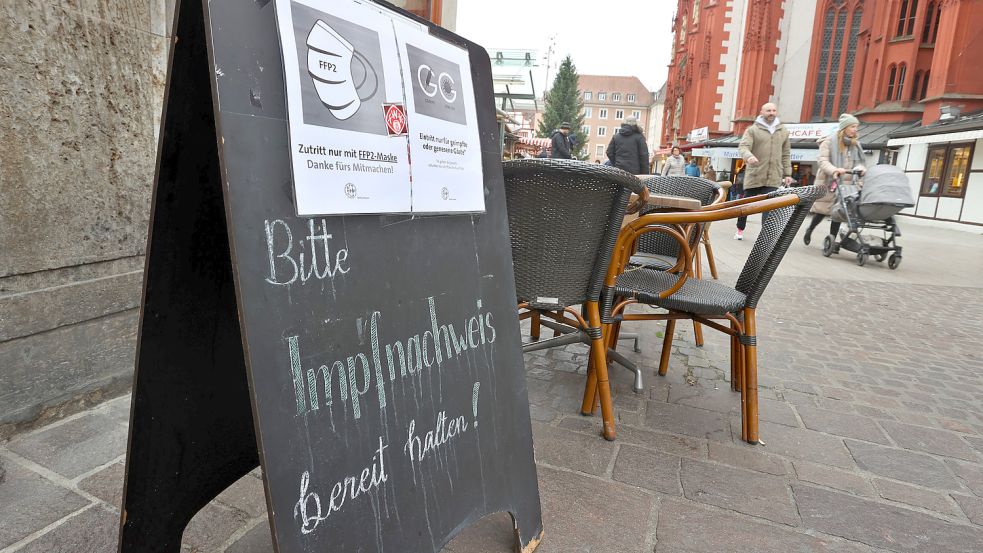 FFP2
Zutritt nur mit FFP2-Maske
Danke fürs Mitmachen!
GG
Eintritt nur für geimpfte
oder genesene Gäste*
Bitte
Impfnachweis
bereit halten!